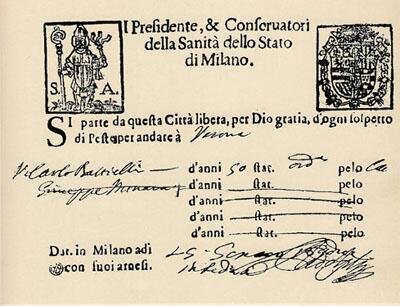 I Presidente, & Conseruatori
della Sanità dello Stato
di Milano.
S. A.
SI parte da questa Città libera, per Dio gratia, d'ogni sospetto
di Peste per andare à Verona
d'anni 50 stat. ord. pelo
d'anni stat. pelo
d'anni stat. pelo
d'anni stat. pelo
d'anni stat. pelo
Dat. in Milano adi
con suoi arnesi.